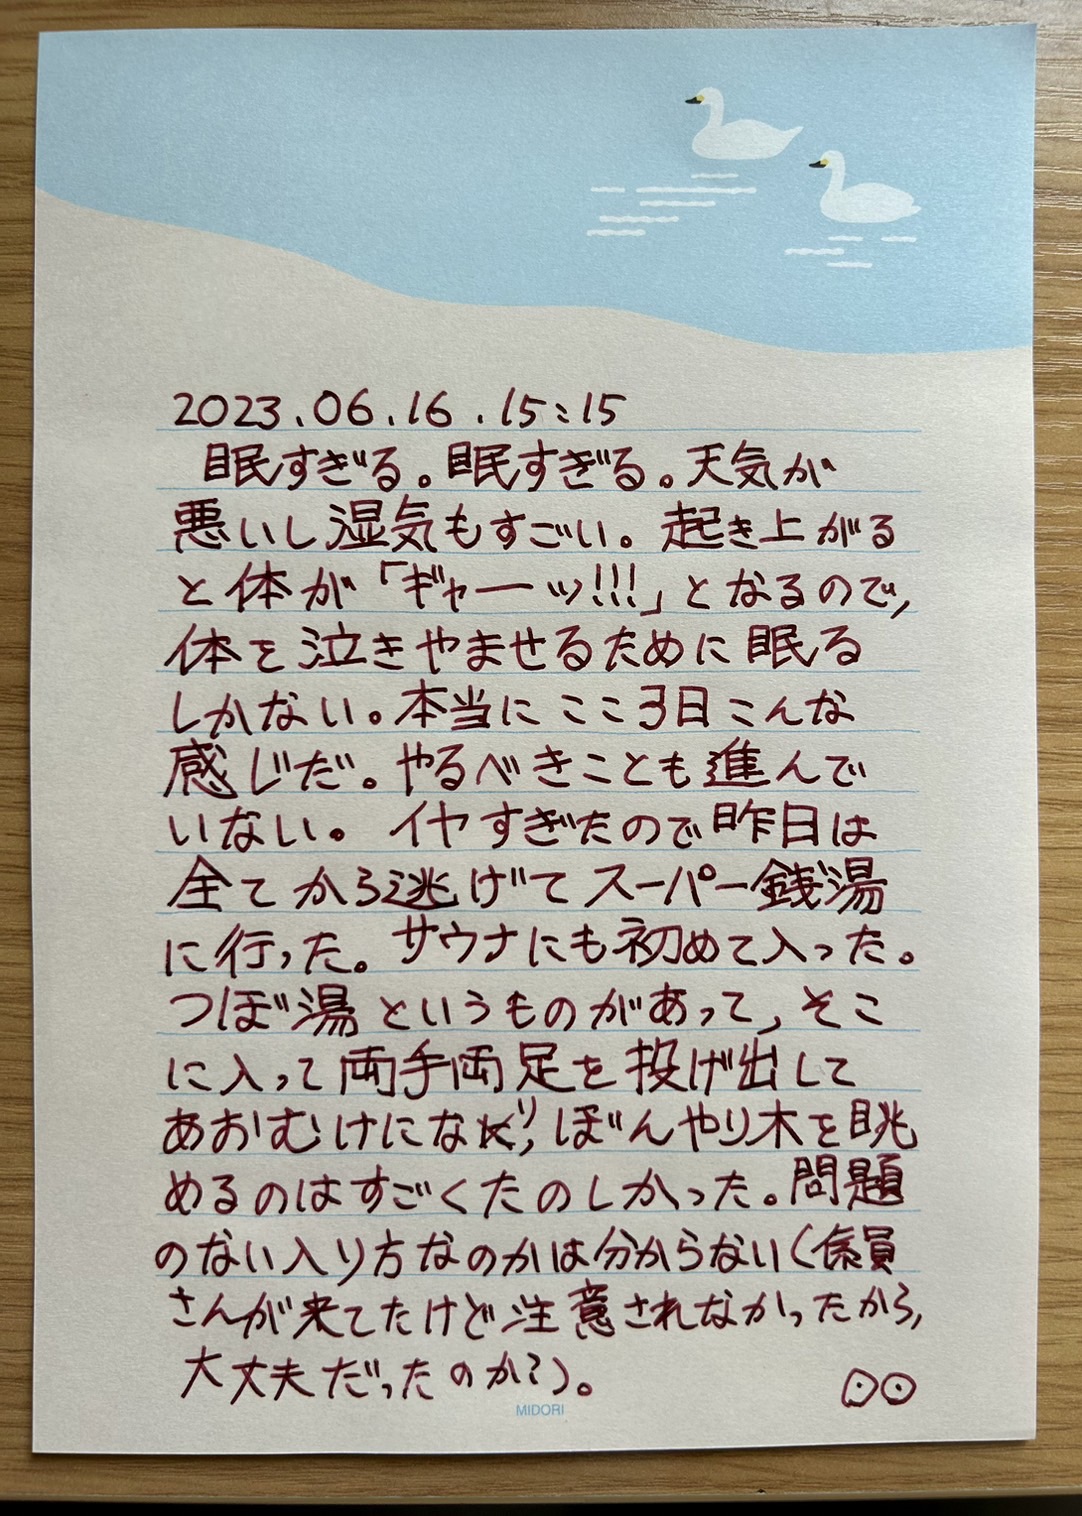 2023.06.16.15:15
眠すぎる。眠すぎる。天気が
悪いし湿気もすごい。起き上がる
と体が「ギャーッ!!!」となるので、
体を泣きやませるために眠る
しかない。本当にここ3日こんな
感じだ。やるべきことも進んで
いない。イヤすぎたので昨日は
全てから逃げてスーパー銭湯
に行った。サウナにも初めて入った。
つぼ湯というものがあって、そこ
に入って両手両足を投げ出して
あおむけになり、ぼんやり木を眺
めるのはすごくたのしかった。問題
のない入り方なのかは分からない(係員
さんが来てたけど注意されなかったから、
大丈夫だったのか?)。
MIDORI